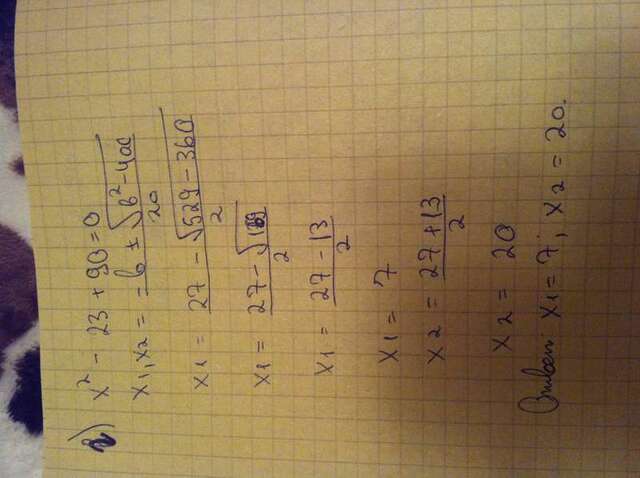 2) x² - 23 + 90 = 0
x1, x2 = -b ± √b² - 4ac / 2a
x1 = 27 - √529 - 360 / 2
x1 = 27 - √169 / 2
x1 = 27 - 13 / 2
x1 = 7
x2 = 27 + 13 / 2
x2 = 20
Ответ: x1 = 7; x2 = 20.